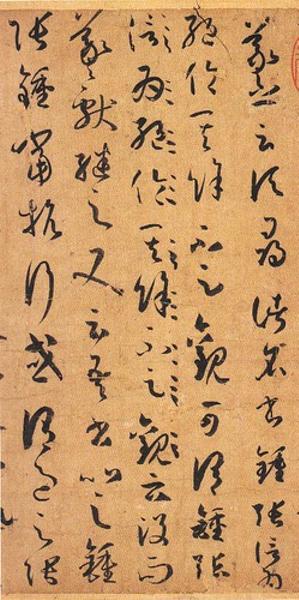 羲之云頃尋諸名書鍾張信為
絕倫其餘不足觀可謂鍾張
信為絕倫其餘不足觀云沒而
羲獻繼之又云吾書比之鍾
張鍾當抗行或謂過之張